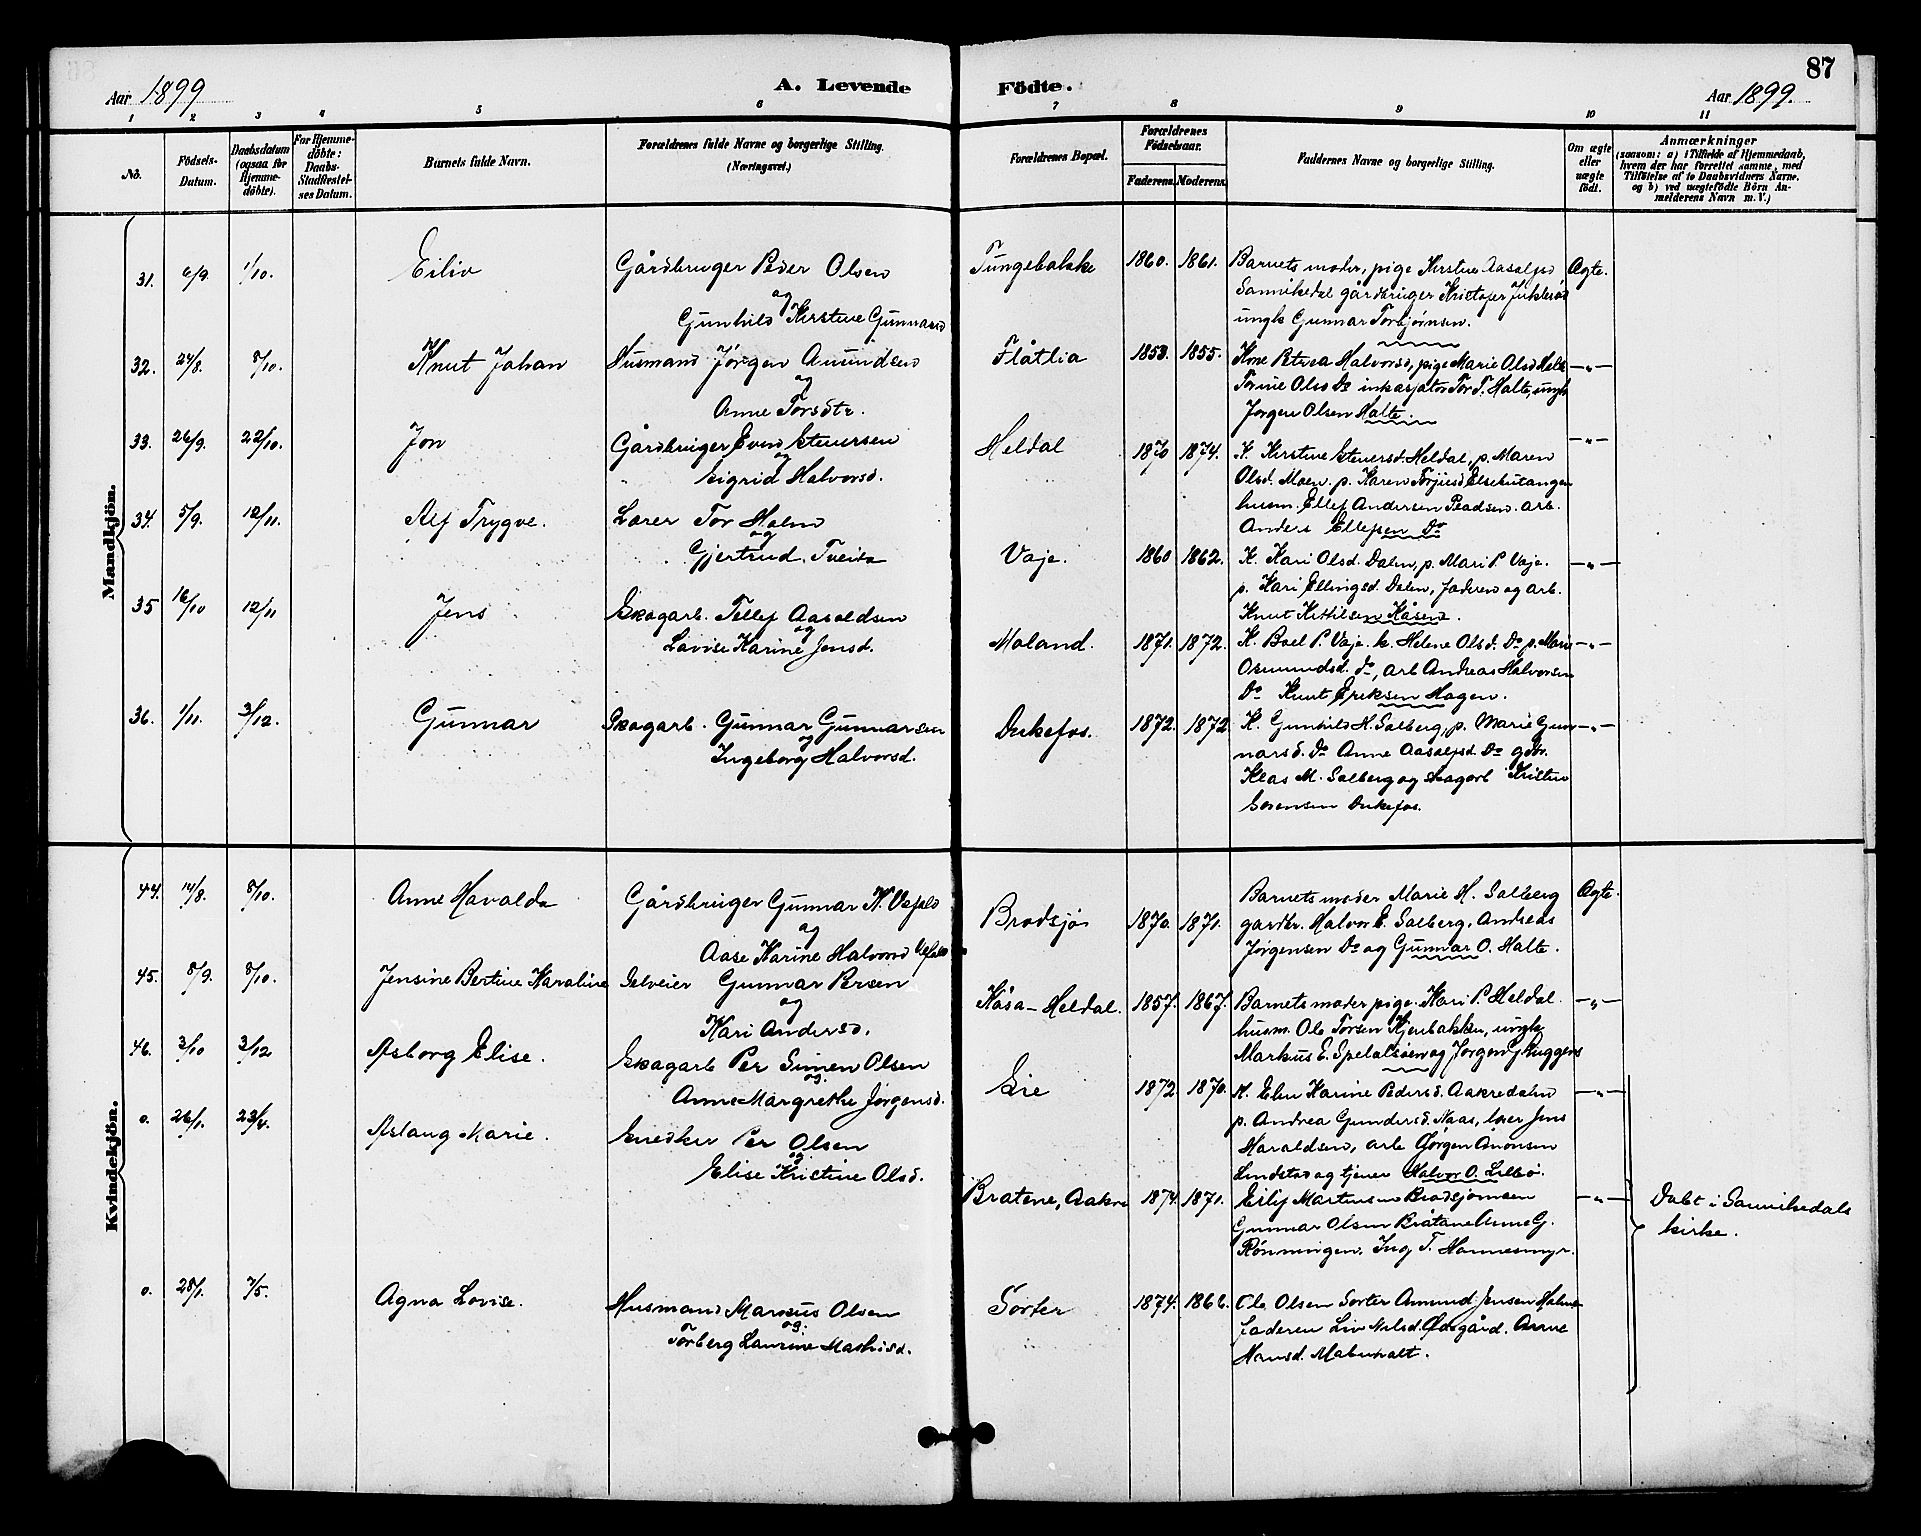 Aar 1899
A. Levende
Födte.
Aar 1899.
87
1 2 3 4 5 6 7 8 9 10 11
No.
Födsels-
Datum.
Daabsdatum
(ogsaa för
Hjemme-
döbte).
For Hjemme-
döbte:
Daabs-
Stadfæstel-
ses Datum.
Barnets fulde Navn.
Forældrenes fulde Navne og borgerlige Stilling.
(Næringsvei.)
Forældrenes Bopæl.
Forældrenes
Födselsaar.
Faderens. Moderens.
Faddernes Navne og borgerlige Stilling.
Om ægte
eller
uægte
födt.
Anmærkninger
(saasom: a) i Tilfælde af Hjemmedaab,
hvem der har forrettet samme, med
Tilföielse af to Daabsvidners Navne,
og b) ved uægtefödte Börn An-
melderens Navn m. V.)
Mandkjön.
31. 6/9. 1/10. Eiliv
Gårdbruger Peder Olsen
og
Gunhild Kirstine Gunnarsd
Tungebakke 1860. 1861.
Barnets moder, pige Kirstine Aasulfsd
Sannikedal gårdbruger Kristofer
ungk Gunnar Torbjørnsen.
Ægte.
32. 24/8. 8/10. Knut Johan
Husmand Jørgen Amundsen
og
Anne Torsdtr.
Flåtlia 1853. 1855.
Kone Petrea Halvorsd, pige Marie Olsd
Trine Olsd Do Tor T. Halte, ungk
Jørgen Olsen Halte.
—"—
33. 26/9. 22/10. Jon
Gårdbruger Even Stenersen
og
Sigrid Halvorsd.
Heldal 1870 1874.
K. Kirstine Stenersd. Heldal, p. Maren
Olsd. Moen p. Karen Torjusd
husm. Ellef Andersen arb.
Anders Ellefsen Do
—"—
34. 5/9. 12/11. Alf Trygve.
Lærer Tor Holm
og
Gjertrud Tveita
Vaje. 1860 1862.
K. Kari Olsd. Dalen, p. Mari P. Vaje.
p. Kari Ellingsd. Dalen, faderen og arb.
Knut Kittilsen Kåsen.
—"—
35 16/10 12/11 Jens
Skogarb. Tellef Aasoldsen
og
Lovise Karine Jensd.
Moland. 1871. 1872.
K. Boel P. Vaje. k. Helene Olsd. Do p. Marie
Osmundsd. do, arb Andreas Halvorsen
Do Knut Eriksen Hagen.
—"—
36. 1/11. 3/12. Gunnar
Skogarb. Gunnar Gunnarsen
og
Ingeborg Halvorsd.
Dukefos. 1872. 1872
K. Gunhild H. Solberg, p. Marie Gun-
narsd. Do Anne Aasulfsd. Do gdbr.
Klas M. Solberg og skogarb
Sørensen Dukefos.
—"—
Kvindekjön.
44. 14/8. 8/10. Anne Havalda
Gårdbruger Gunnar N. Vefald
og
Aase Karine Halvorsd Vefald
Brødsjø 1870. 1871.
Barnets moder Marie H. Solberg
gardbr. Halvor E. Solberg, Andreas
Jørgensen Do og Gunnar O. Halte.
Ægte.
45. 8/9. 8/10. Jensine Bertine Karoline
Selveier Gunnar Persen
og
Kari Andersd.
Kåsa - Heldal. 1857. 1867.
Barnets moder pige. Kari P. Heldal.
husm. Ole Torsen Kjenbakken, ungk
Markus E. og Jørgen
—"—
46. 3/10 3/12 Asborg Elise.
Skogarb Per Simen Olsen
og
Anne Margrethe Jørgensd.
Eie 1872 1870.
K. Elen Karine Pedersd. Aakredalen
p. Andrea Gundersd. Naas, Jens
Haraldsen, arb Jørgen
Lindstad og tjener Halvor O. Lillebø.
—"—
o. 26/1. 23/4. Aslaug Marie.
Snedker Per Olsen
og
Elise Kristine Olsd.
Bråtene, Aakre 1874. 1870.
Eilif Martinsen
Gunnar Olsen Bråtane Anne G.
Rønningen, Ing T. Hannesmyr.
—"—
Døbt i Sannikedals
kirke.
o. 28/1. 7/5. Agna Lovise.
Husmand Markus Olsen
og.
Torberg Laurine Mathisd.
Sorter 1874. 1866.
Ole Olsen Sorter Amund Jensen
faderen Liv Nilsd. Ødegård. Anne
Hansd.